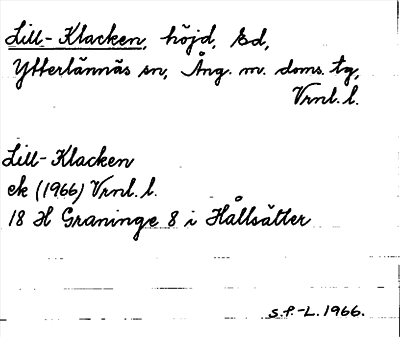 Lill-Klacken, höjd, Ed,
Ytterlännäs sn, Ång. m. doms. tg,
Vrnl. l.
Lill-Klacken
ek (1966) Vrnl. l.
18 H Graninge 8 i Hållsätter
S.P.-L. 1966.